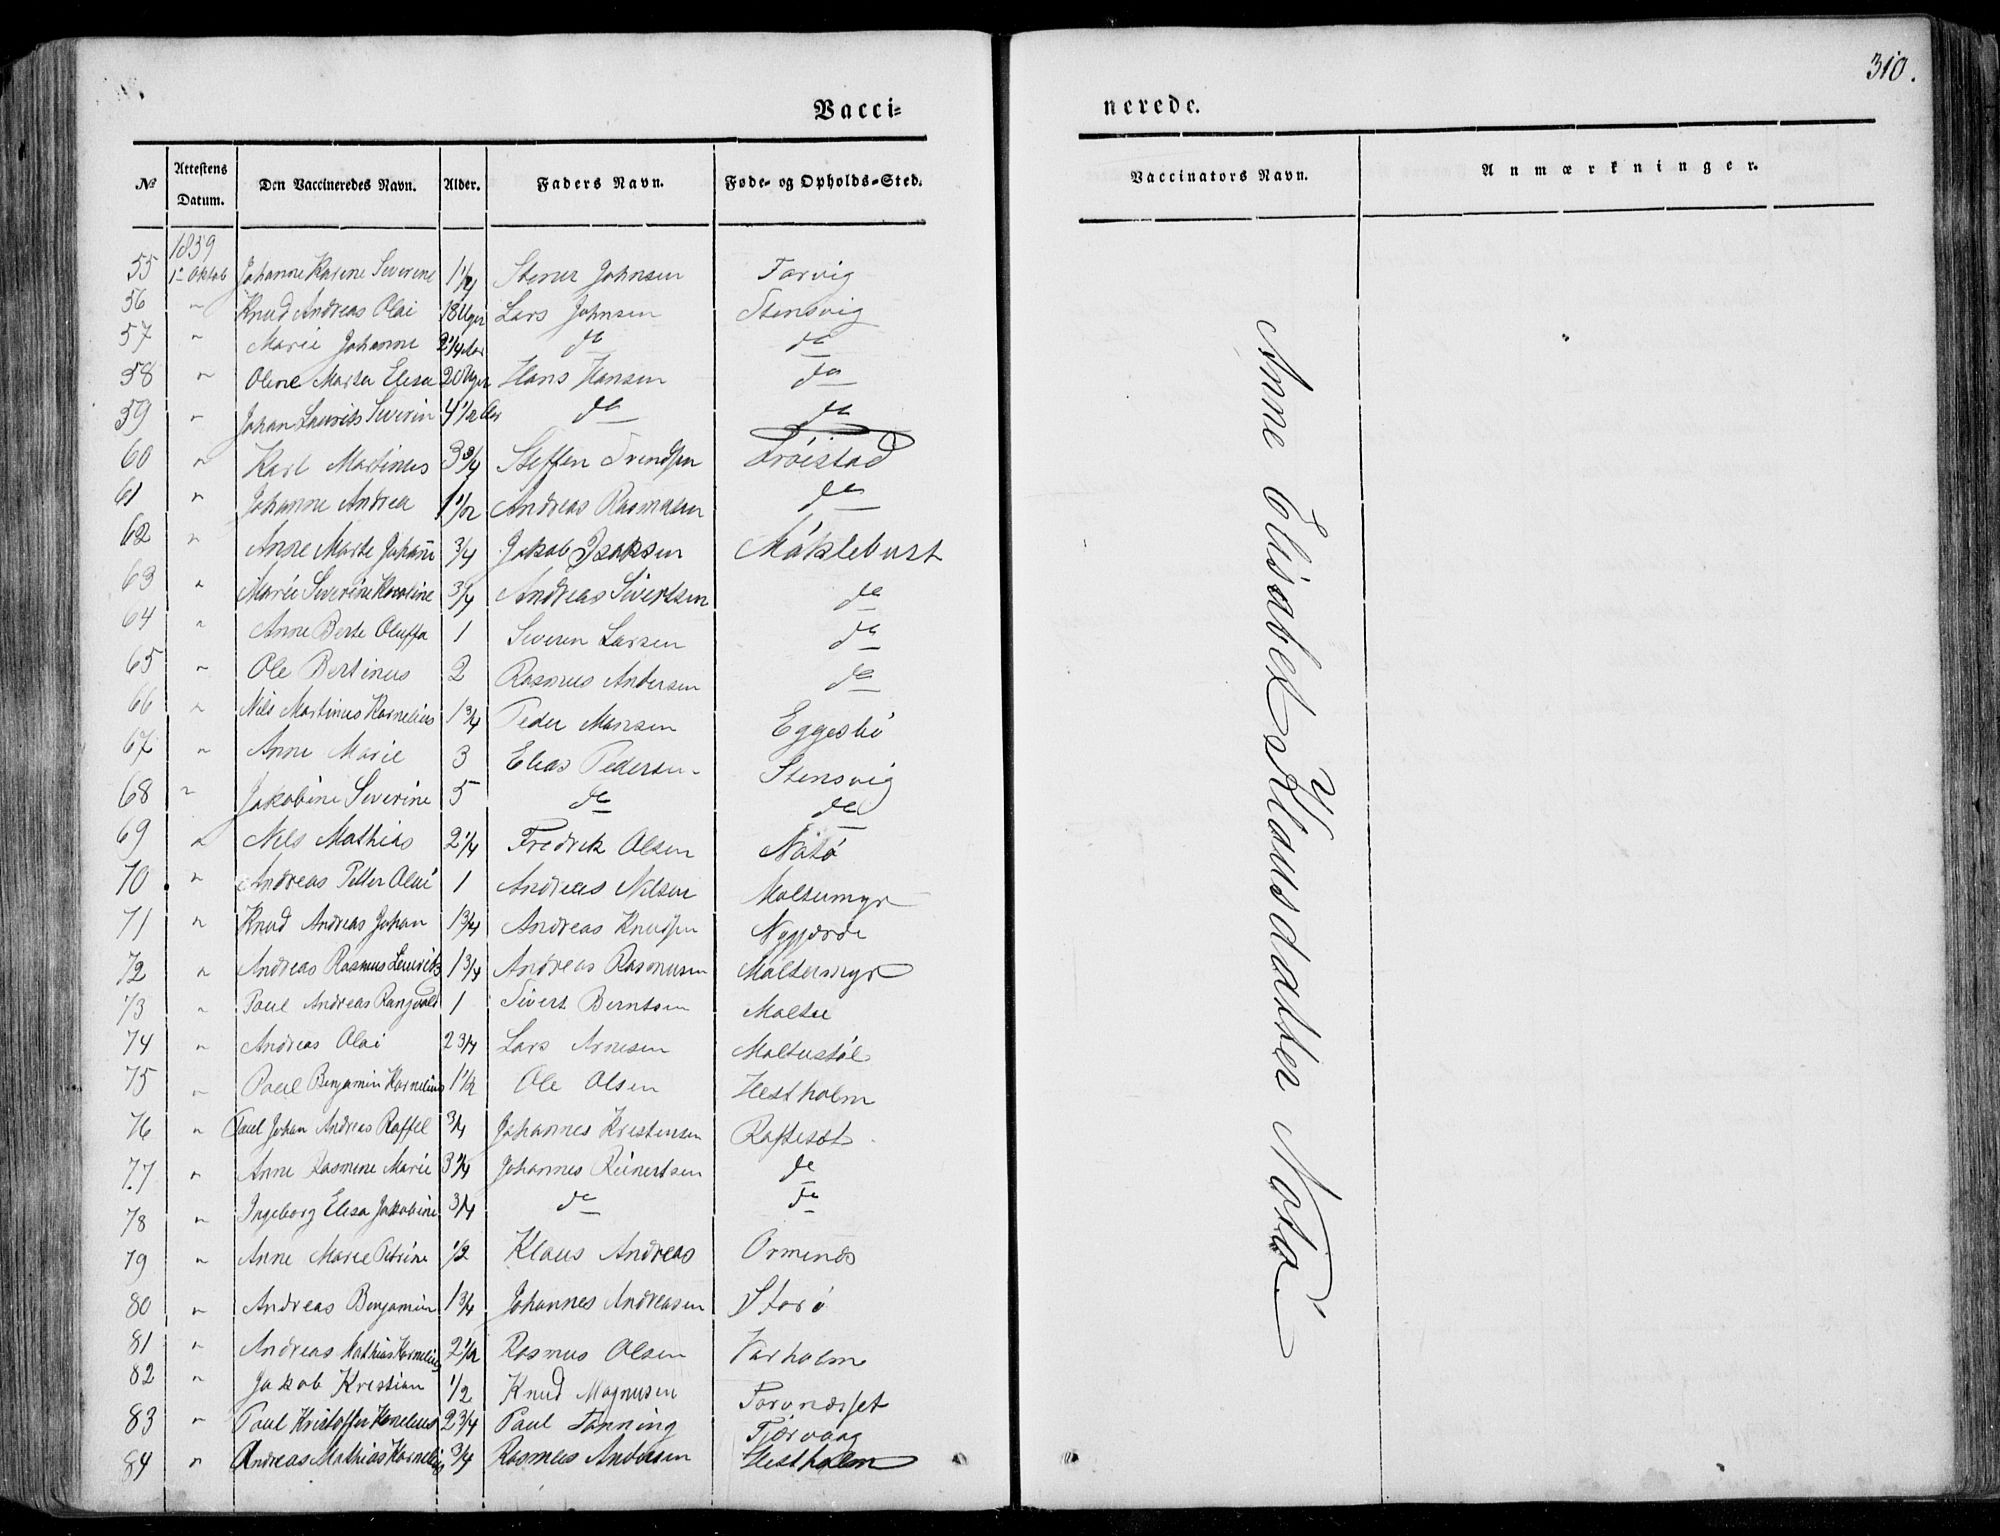 310.
Vacci-
nerede.
№ Attestens Datum. Den Vaccineredes Navn. Alder. Faders Navn. Føde- og Opholds-Sted.
Vaccinators Navn. Anmærkninger.
1859
55 1ste Oktob Johanne Karine Severine 1 1/4 Stener Johnsen Torvig
56 " Knud Andreas Olai 18 Uger Lars Johnsen Stensvig
57 " Marie Johanne 2 1/4 Aar do do
58 " Oline Marta Elisa 20 Uger Hans Hansen do
59 " Johan Laurits Severin 4 1/2 Aar do do
60 " Karl Martinus 3 3/4 Steffen Trendsen Frøistad
61 " Johanne Andrea 1 1/2 Andreas Rasmusen do
62 " Anne Marte Johane 3/4 Jakob Isaksen Møklebust
63 " Marie Severine Karoline 3/4 Andreas Sivertsen do
64 " Anne Berte Oluffa 1 Severin Larsen do
65 " Ole Bertinus 2 Rasmus Andersen do
66 " Nils Martinus Kornelius 1 3/4 Peder Mansen Eggesbø
67 " Anne Marie 3 Elias Pedersen Stensvig
68 " Jakobine Severine 5 do do
69 " Nils Mathias 2 1/4 Fredrik Olsen Notø
70 " Andreas Petter Olai 1 Andreas Nilsen Moltumyr
71 " Knud Andreas Johan 1 3/4 Andreas Knudsen Nygjærde
72 " Andreas Rasmus Laurits 1 3/4 Andreas Rasmusen Moltumyr
73 " Paul Andreas Rangvald 1 Sivert Berntsen Moltu
74 " Andreas Olai 2 3/4 Lars Arnesen Moltustøl
75 " Paul Benjamin Kornelius 1 1/2 Ole Olsen Hestholm
76 " Paul Johan Andreas Raffel 3/4 Johannes Kristensen Raftesæt
77 " Anne Rasmine Marie 3 1/4 Johannes Reinertsen do
78 " Ingeborg Elisa Jakobine 3/4 do do
79 " Anne Marie Petrine 1/2 Klaus Andreas Ormenæs
80 " Andreas Benjamin 1 3/4 Johannes Andreasen Storø
81 " Andreas Mathias Kornelius 2 1/2 Rasmus Olsen Varholm
82 " Jakob Kristian 1/2 Knud Magnusen Torvnæsset
83 " Paul Kristoffer Kornelius 2 3/4 Paul Tønning Tjørvaag
84 " Andreas Mathias Kornelius 3/4 Rasmus Andersen Hestholm
Anne Elisabet Klausdatter Notø